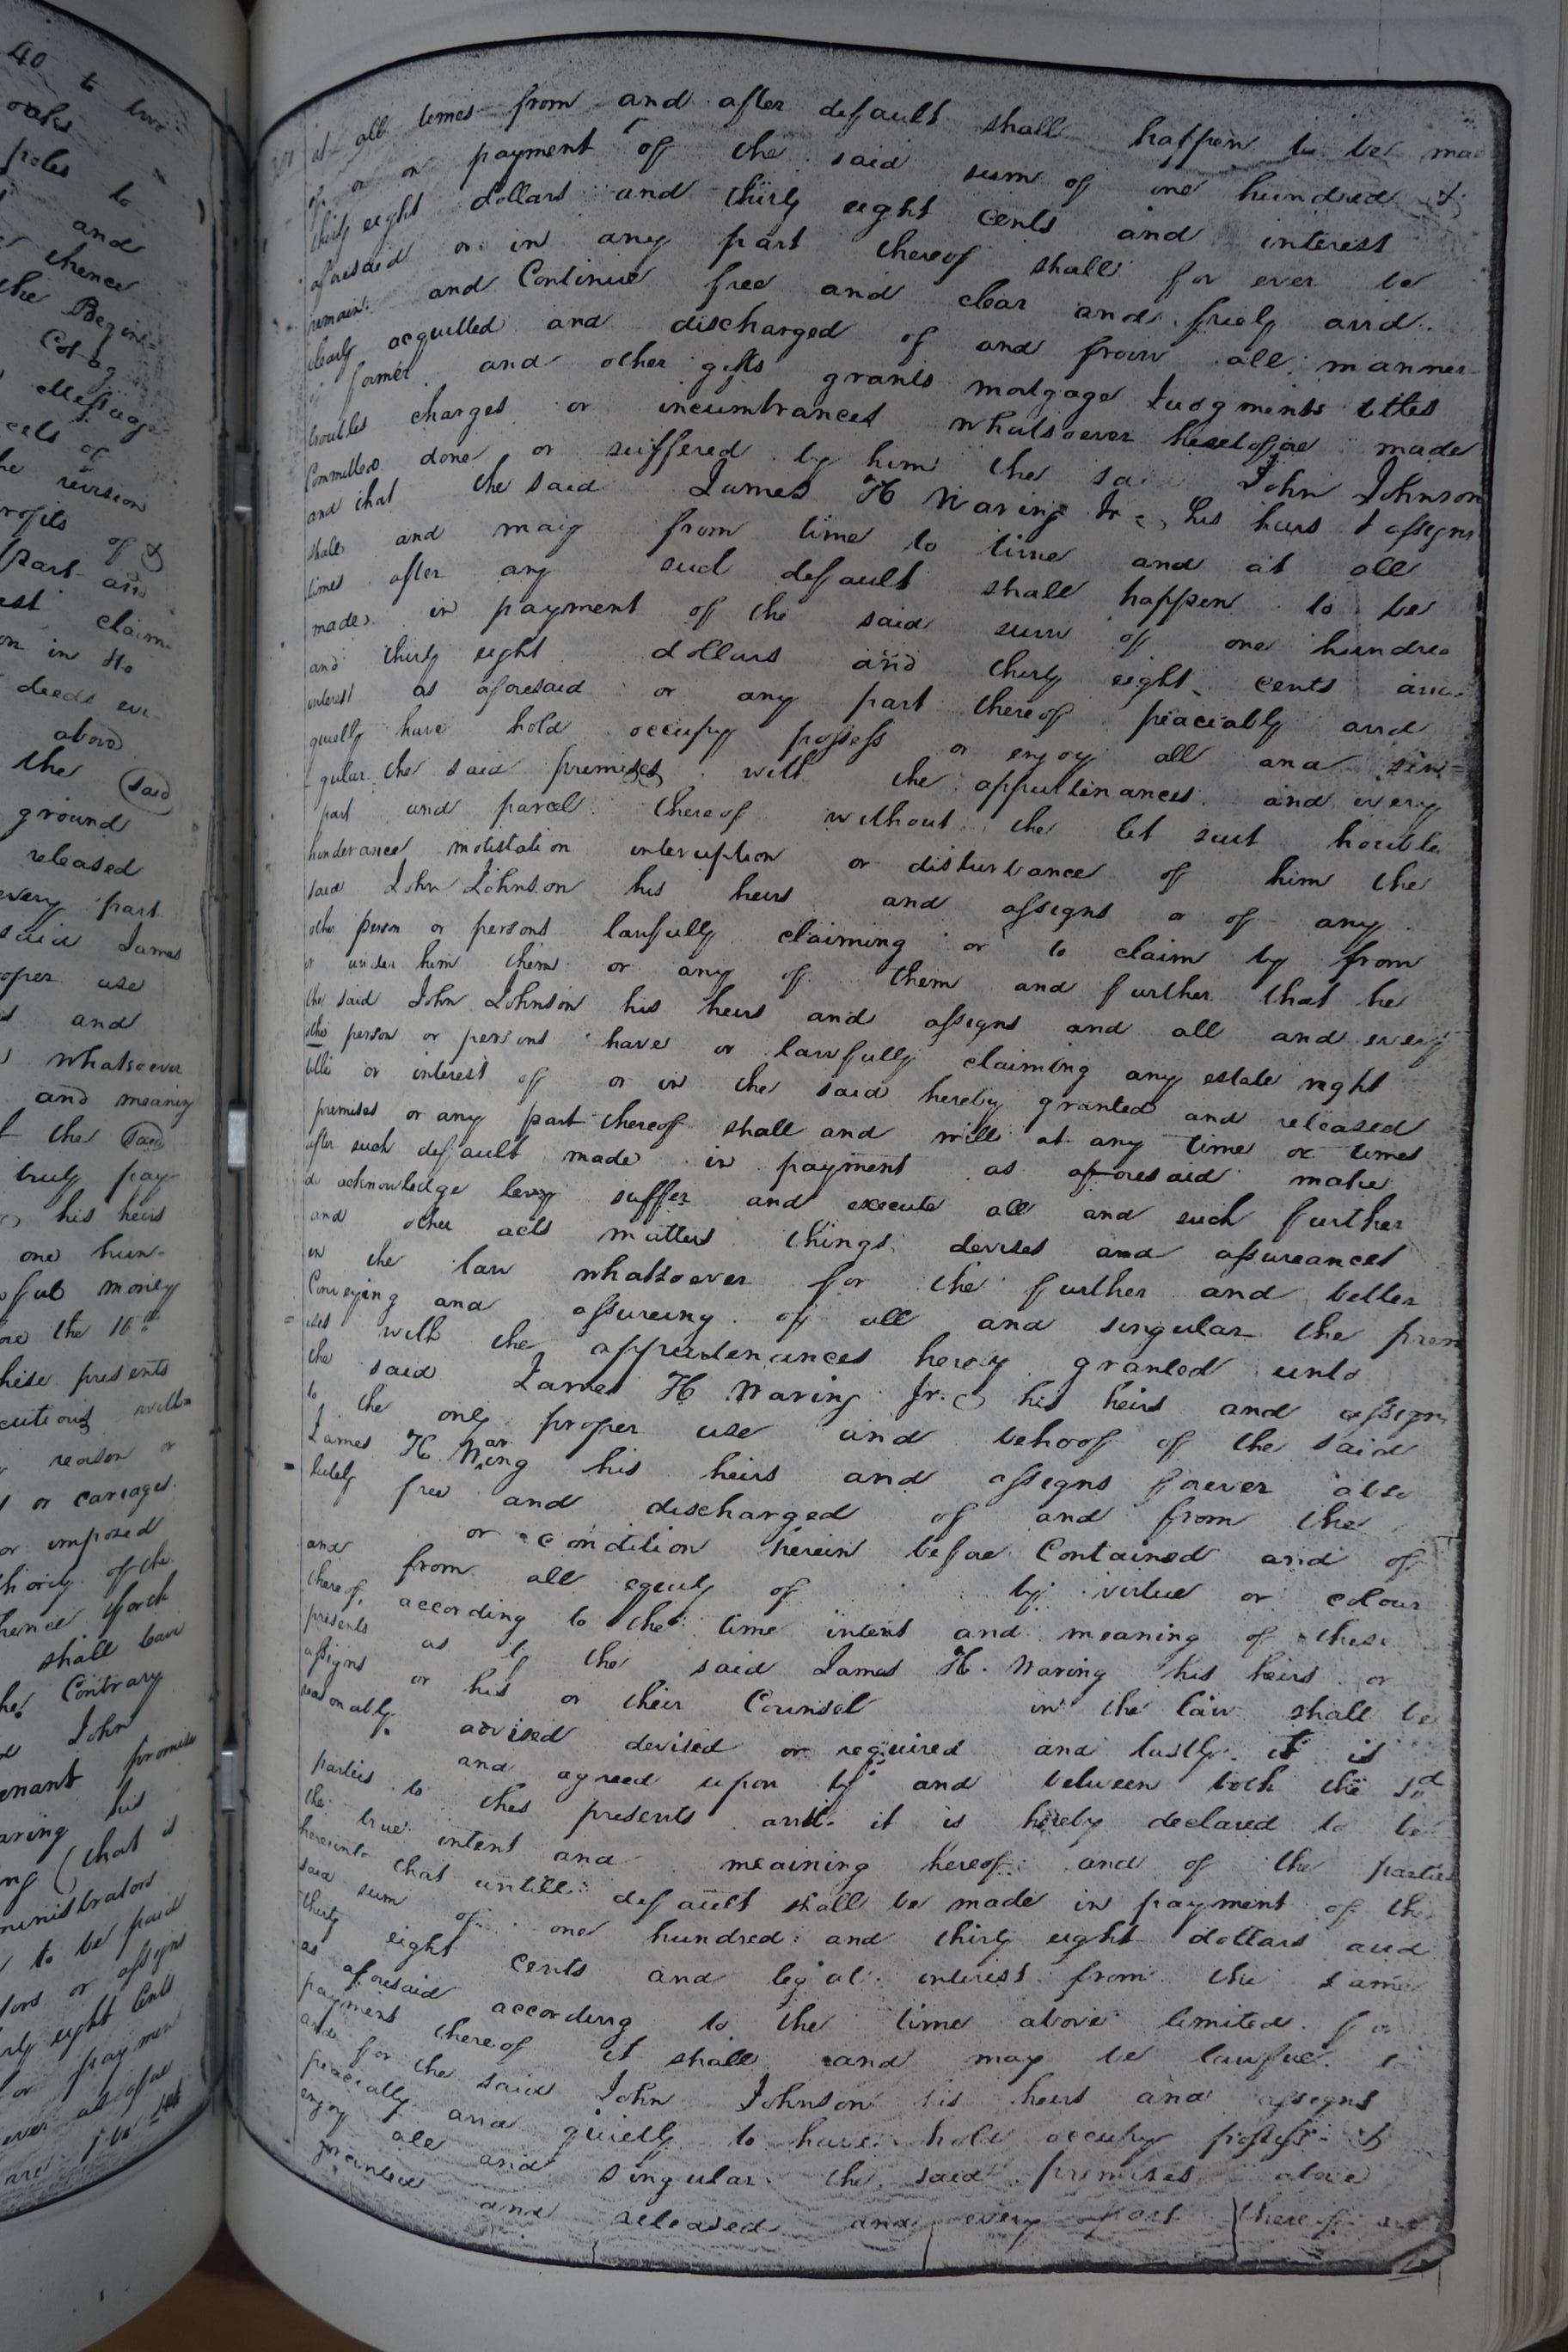 40 to two
oaks
poles to
and
thence
the Begin-
Cot-ag
Messuage
cels of
he revision
rofits of &
part and
est claim
on in to
deeds evi-
above
the said
ground
released
every part
said James
roper use
and
whatsoever
and meaning
the said
truly pay
his heirs
one hun-
ful money
the 16th
these presents
cutions
reason or
or
or imposed
thority of the
hence forth
shall bear
the Contrary
John
enant promise
aring his
ng (that is
ministrators
to be paid
tors or assigns
ty eight Cents
or paymen
ever as afore
are
at all times from and after default shall happen to be mad
of or on payment of the said sum of one hundred &
thirty eight dollars and thirty eight cents and interest
aforesaid or in any part thereof shall for ever be
remain and Continue free and clear and freely and
clearly acquitted and discharged of and from all manner
of former and other gifts grants mortgage Judgments titles
troubles charges or incumbrances whatsoever heretofore made
Committed done or suffered by him the said John Johnson
and that the said James H Waring Jr his heirs & assigns
shall and may from time to time and at all
times after any such default shall happen to be
made in payment of the said sum of one hundred
and thirty eight dollars and thirty eight cents and
interest as aforesaid or any part thereof peaceably and
quietly have hold occupy possess or enjoy all and sin=
-gular the said premises with the appurtinances and every
part and parcel thereof without the let suit
hinderance molistation interuption or disturbance of him the
said John Johnson his heirs and assigns or of any
other person or persons lawfully claiming or to claim by from
or under him them or any of them and further that he
the said John Johnson his heirs and assigns and all and every
other person or persons have or lawfully claiming any estate right
title or interest of or in the said hereby granted and released
premises or any part thereof shall and will at any time or times
after such default made in payment as aforesaid make
do acknowledge levy suffer and execute all and such further
and other acts matters things devises and assureances
in the law whatsoever for the further and better
Conveying and assureing of all and singular the prem
ises with the appurtenances hereby granted unto
the said James H Waring Jr. his heirs and assigns
to the only proper use and behoof of the said
James H Waring his heirs and assigns foever abso
lutely free and discharged of and from the
or condition herein before Contained and of
and from all equity of by virtue or colour
thereof according to the time intent and meaning of these
presents as by the said James H. Waring his heirs or
assigns or his or their Counsel in the law shall be
reasonably advised devised or required and lastly it is
and agreed upon by and between both the sd
parties to thes presents and it is hereby declared to be
the true intent and meaining hereof and of the parties
hereunto that untill default shall be made in payment of the
said sum of one hundred and thirty eight dollars and
thirty eight cents and legal interest from the same
as aforesaid according to the time above limited for
payment thereof it shall and may be lawful to
and for the said John Johnson his heirs and assigns
peacially and quietly to have hold occupy possess &
enjoy all and singular the said premises above
granted and released and every part thereof